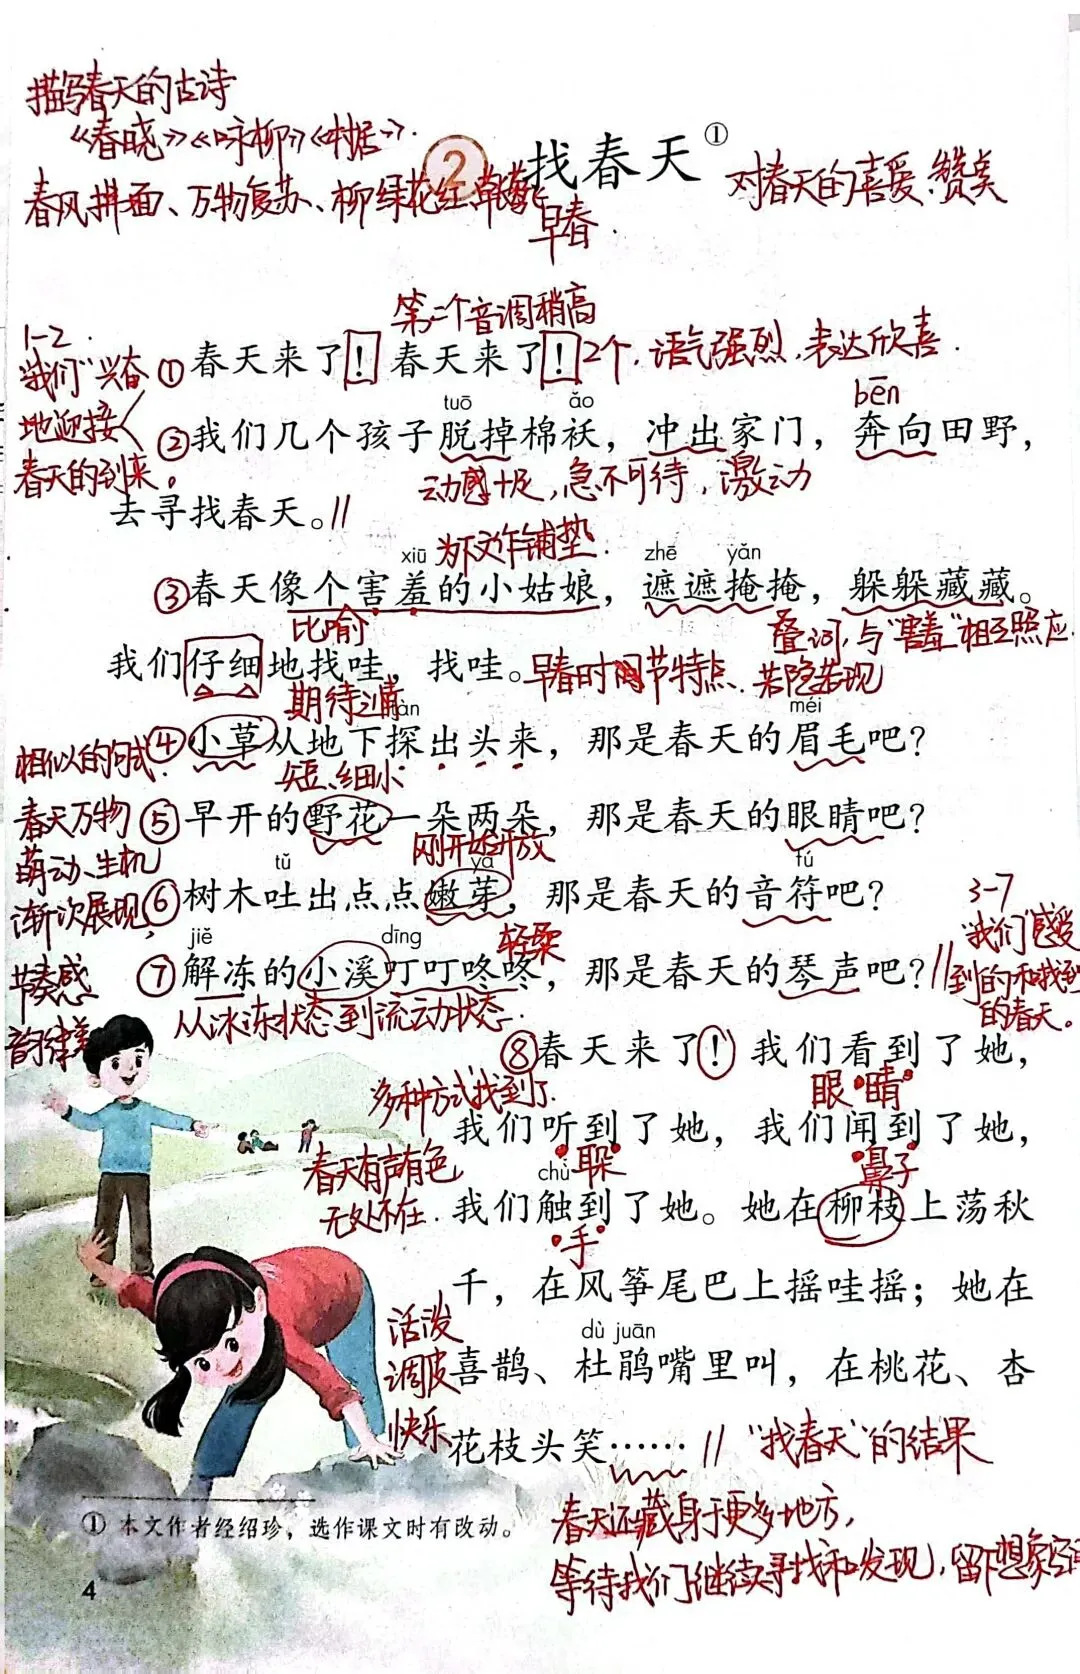 描写春天的古诗
《春晓》《咏柳》《村居》.
② 找春天①
春风拂面、万物复苏、柳绿花红、草
早春.
对春天的喜爱、赞美
第二个音调稍高
1-2.
"我们"兴奋
地迎接
春天的到来。
①春天来了！春天来了！
2个,语气强烈,表达欣喜.
tuō ǎo bēn
②我们几个孩子脱掉棉袄，冲出家门，奔向田野，
动感十足,急不可待,激动
去寻找春天。//
为下文作铺垫.
xiū zhē yǎn
③春天像个害羞的小姑娘，遮遮掩掩，躲躲藏藏。
比喻
叠词,与"害羞"相互照应
我们仔细地找哇，找哇。
早春时间节特点.若隐若现
期待
méi
④小草从地下探出头来，那是春天的眉毛吧？
短、细小
相似的句式.
春天万物
萌动、生机
渐次展现,
节奏感
韵律美
⑤早开的野花一朵两朵，那是春天的眼睛吧？
刚开始开放
tǔ yá fú
⑥树木吐出点点嫩芽，那是春天的音符吧？
轻柔
jiě dīng
⑦解冻的小溪叮叮咚咚，那是春天的琴声吧？//
从冰冻状态到流动状态.
3-7
"我们"感受
到的和找到
的春天。
⑧春天来了！我们看到了她，
眼睛
多种方式"找到了.
我们听到了她，我们闻到了她，
春天有声有色
无处不在.
chù
鼻子
我们触到了她。她在柳枝上荡秋
手
千，在风筝尾巴上摇哇摇；她在
活泼
调皮
快乐
dù juān
喜鹊、杜鹃嘴里叫，在桃花、杏
花枝头笑……//
"找春天"的结果
春天还藏身于更多地方,
等待我们继续寻找和发现,留下想象空间
① 本文作者经绍珍，选作课文时有改动。
4